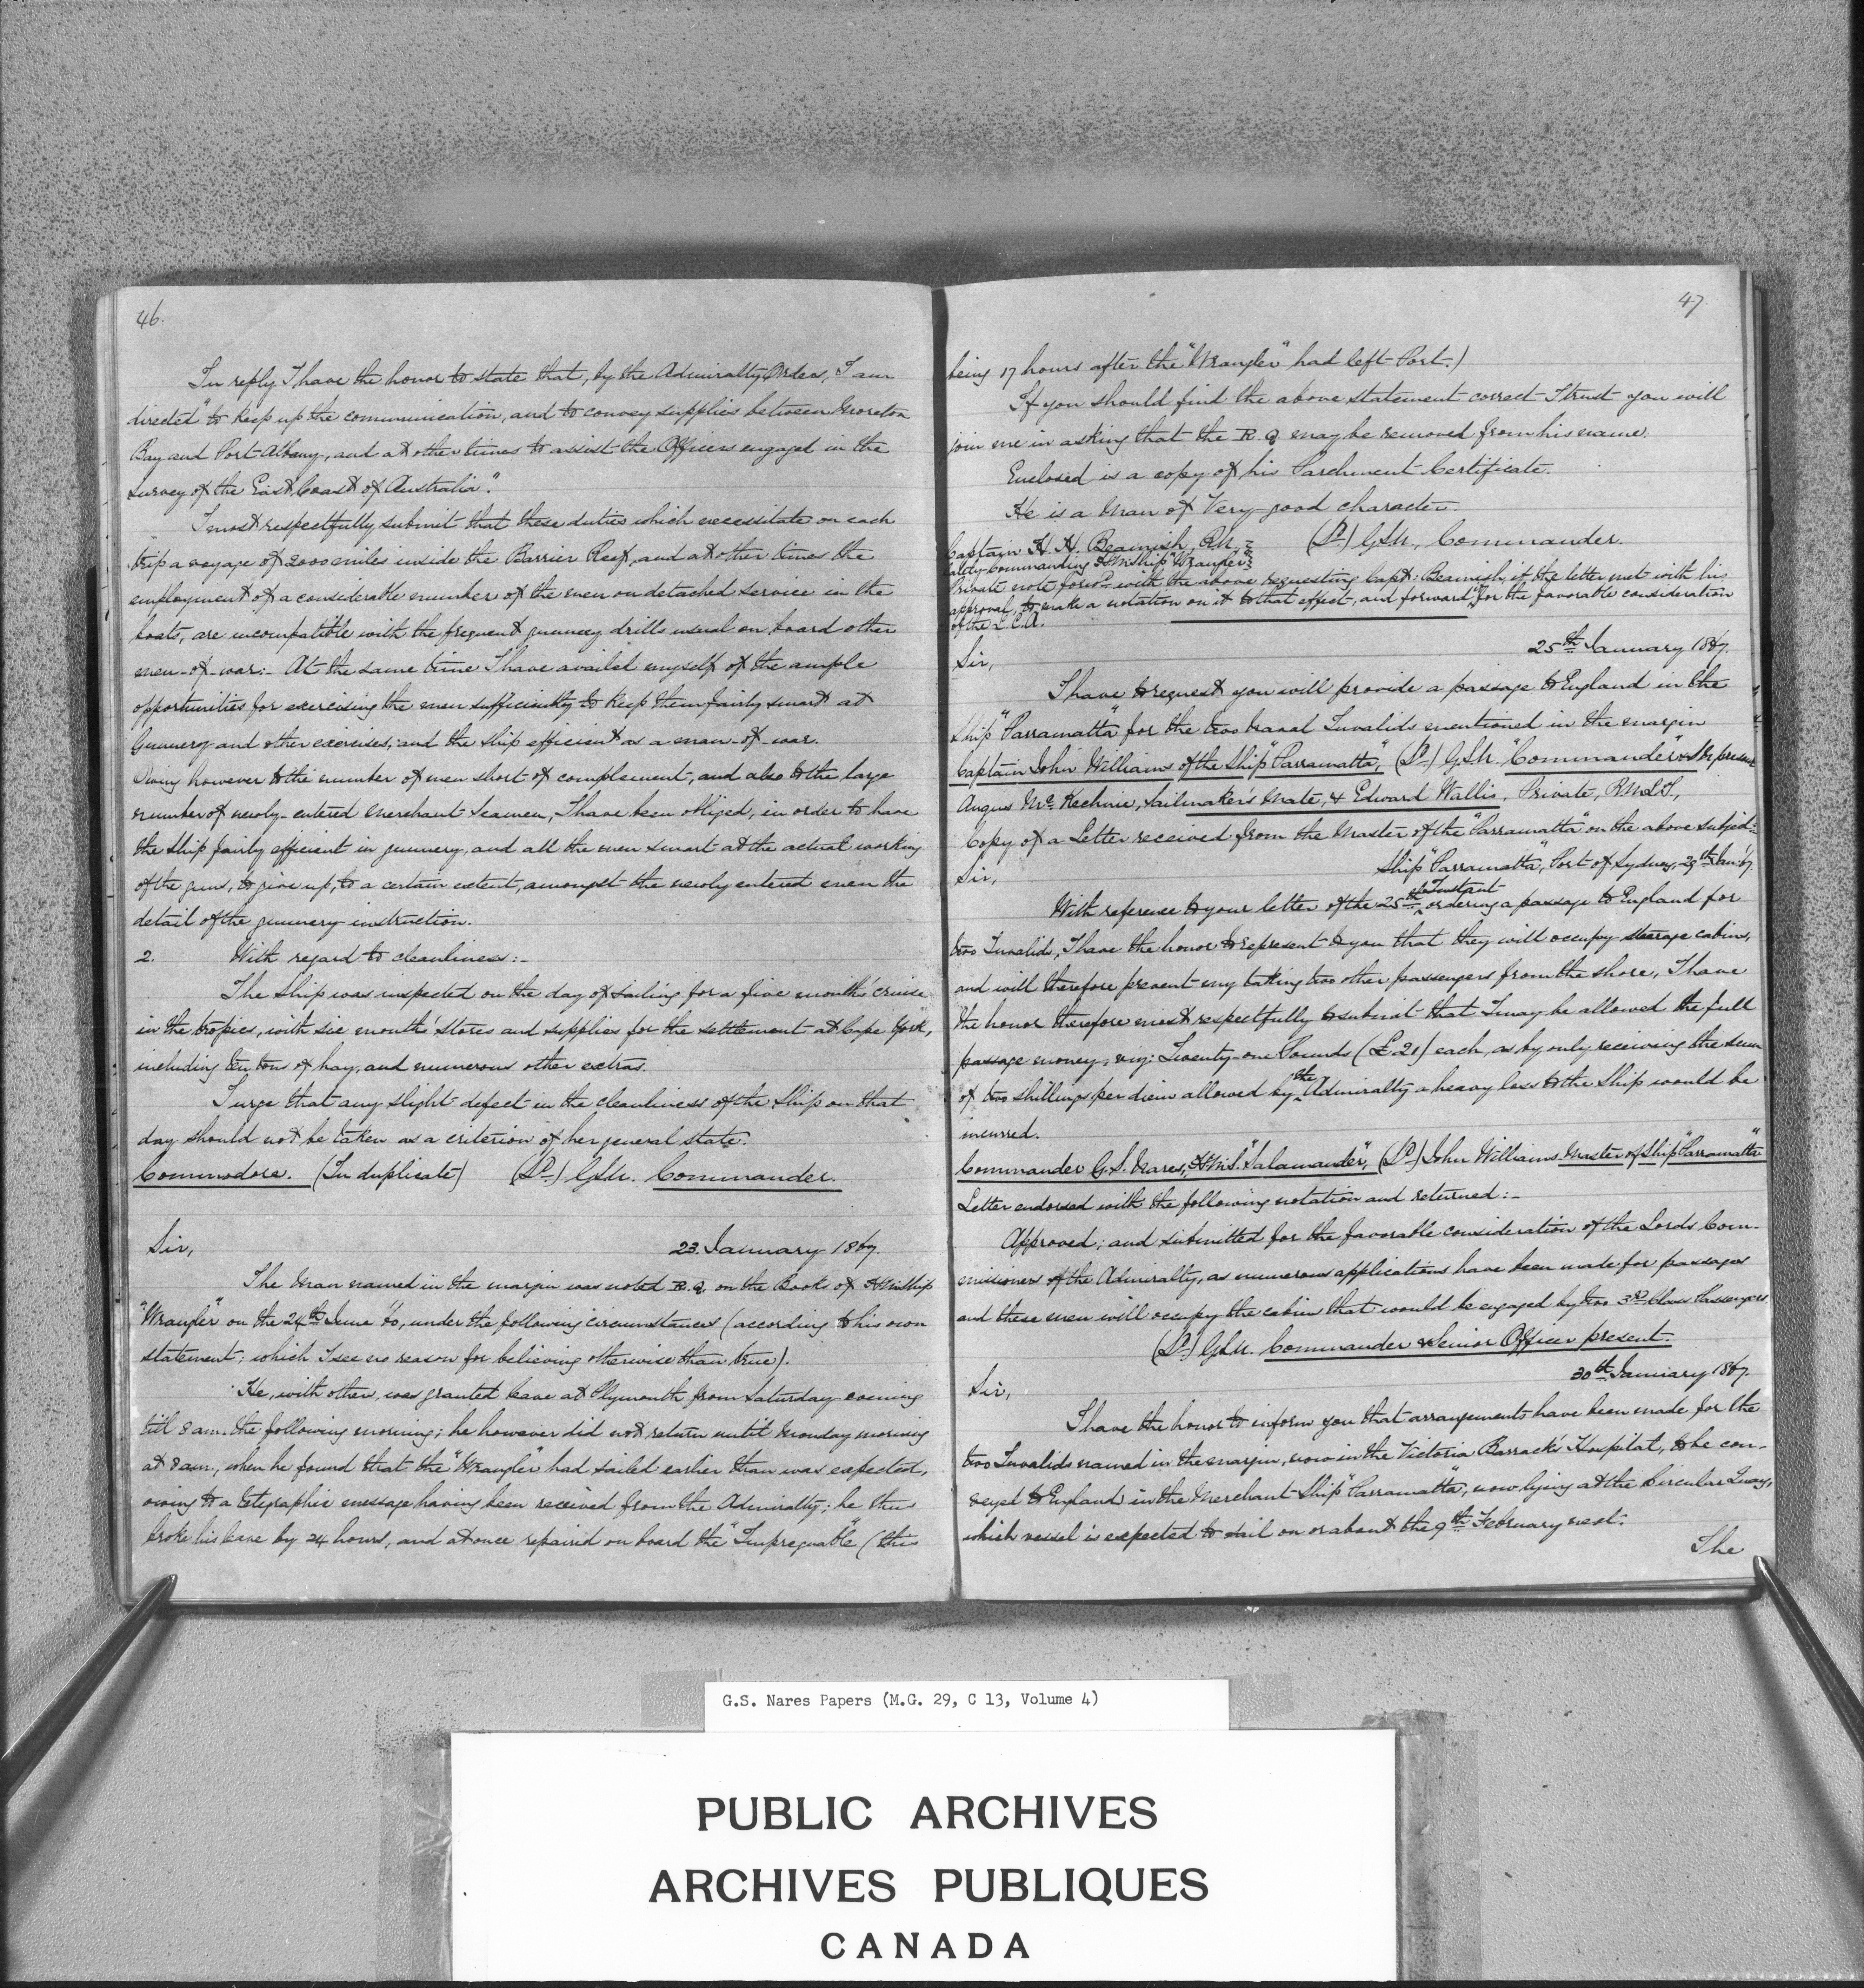 46.
In reply I have the honor to state that, by the Admiralty Orders, I am
directed "to keep up the communication, and to convey supplies between Moreton
Bay and Port Albany, and at other times to assist the Officers engaged in the
survey of the East Coast of Australia."
I most respectfully submit that these duties which necessitate on each
trip a voyage of 2000 miles inside the Barrier Reef, and at other times the
employment of a considerable number of the men on detached service in the
boats, are incompatible with the frequent gunnery drills usual on board other
men-of-war:- At the same time I have availed myself of the ample
opportunities for exercising the men sufficiently to keep them fairly smart at
Gunnery and other exercises; and the ship efficient as a man-of-war.
Owing however to the number of men short of complement, and also to the large
number of newly-entered Merchant Seamen, I have been obliged, in order to have
the ship fairly efficient in gunnery, and all the men smart at the actual working
of the guns, to give up, to a certain extent, amongst the newly entered men the
detail of the gunnery instruction.
2. With regard to cleanliness:-
The Ship was inspected on the day of sailing for a five months' cruise
in the tropics, with six months' stores and supplies for the settlement at Cape York,
including ten tons of hay, and numerous other extras.
I urge that any slight defect in the cleanliness of the Ship on that
day should not be taken as a criterion of her general state.
Commodore. (In duplicate) (Sd.) GSN. Commander.
Sir, 23. January 1867.
The Man named in the margin was noted R.Q. on the Books of HMShip
"Wrangler" on the 24th June, under the following circumstances (according to his own
statement; which I see no reason for believing otherwise than true).
He, with other, was granted leave at Plymouth from Saturday evening
till 8 am. the following morning; he however did not return until Monday morning
at 8 am, when he found that the "Wrangler" had sailed earlier than was expected,
owing to a telegraphic message having been received from the Admiralty; he thus
broke his leave by 24 hours, and at once repaired on board the "Impregnable" (this
47.
being 17 hours after the "Wrangler" had left Port.)
If you should find the above statement correct I trust you will
join me in asking that the R.Q may be removed from his name.
Enclosed is a copy of his Parchment Certificate.
He is a Man of Very good character.
Captain H. H. Beamish, R.N. (Sd.) GSN., Commander.
lately Commanding HMShip "Wrangler"
Private note forwd. with the above requesting Capt: Beamish, if the letter met with his
approval, to make a notation on it to that effect, and forward for the favorable consideration
of the L.C.A.
25th January 1867.
Sir,
I have to request you will provide a passage to England in the
Ship "Parramatta" for the two Naval Invalids mentioned in the margin
Captain John Williams of the Ship "Parramatta", (Sd.) GSN. "Commander" & Sr. present
Angus McKechnie, Sailmaker's Mate, & Edward Wallis, Private, RMLI,
Copy of a Letter received from the Master of the "Parramatta" on the above subject:
Ship "Parramatta", Port of Sydney, 29th Jan: 67.
Sir,
With reference to your letter of the 25th Instant ordering a passage to England for
two Invalids, I have the honor to represent to you that they will occupy steerage cabins,
and will therefore prevent my taking two other passengers from the shore, I have
the honor therefore most respectfully to submit that I may be allowed the full
passage money, viz: Twenty-one Pounds (£21) each, as by only receiving the sum
of two shillings per diem allowed by the Admiralty a heavy loss to the Ship would be
incurred.
Commander G.S. Nares, H.M.S. "Salamander", (Sd.) John Williams Master of Ship "Parramatta"
Letter endorsed with the following notation and returned:-
Approved; and submitted for the favorable consideration of the Lords Com-
missioners of the Admiralty, as numerous applications have been made for passages
and these men will occupy the cabin that would be engaged by two 3rd Class Passengers.
(Sd.) GSN. Commander & Senior Officer present.
30th January 1867.
Sir,
I have the honor to inform you that arrangements have been made for the
two Invalids named in the margin, now in the Victoria Barracks Hospital, to be con-
veyed to England in the Merchant Ship "Parramatta", now lying at the Circular Quay,
which vessel is expected to sail on or about the 9th February next.
The
G.S. Nares Papers (M.G. 29, C 13, Volume 4)
PUBLIC ARCHIVES
ARCHIVES PUBLIQUES
CANADA